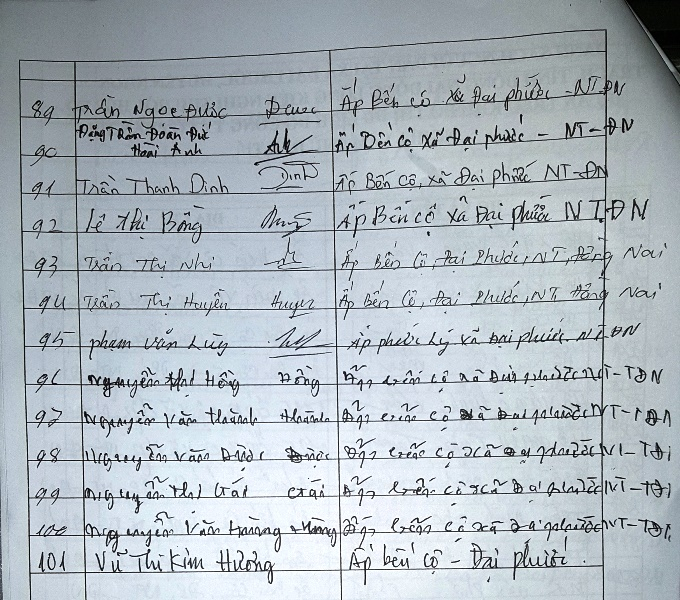 89 Trần Ngọc Được Được Ấp Bến Cộ xã Đại phước - NT-ĐN
90 Đặng Trần Đoàn Đức Hoài Anh Ấp Bến Cộ xã Đại phước - NT-ĐN
91 Trần Thanh Dinh Dinh Ấp Bến Cộ, xã Đại phước NT-ĐN
92 Lê Thị Bông Ấp Bến Cộ xã Đại Phước NT.ĐN
93 Trần Thị Nhi Ấp Bến Cộ, Đại Phước, NT, Đồng Nai
94 Trần Thị Huyền Huyền Ấp Bến Cộ, Đại Phước, NT, Đồng Nai
95 phạm Văn Lũy Ấp phước Lý xã Đại phước. NT.ĐN
96 Nguyễn thị Hồng Hồng cộ xã Đại phước NT-TĐN
97 Nguyễn Văn thành thành cộ xã Đại phước NT-TĐN
98 Nguyễn Văn Được Được cộ xã Đại phước NT-TĐN
99 Nguyễn thị cộ xã Đại phước NT-TĐN
100 Nguyễn Văn cộ xã Đại phước NT-TĐN
101 Vũ Thị Kim Hương Ấp bến Cộ - Đại Phước.